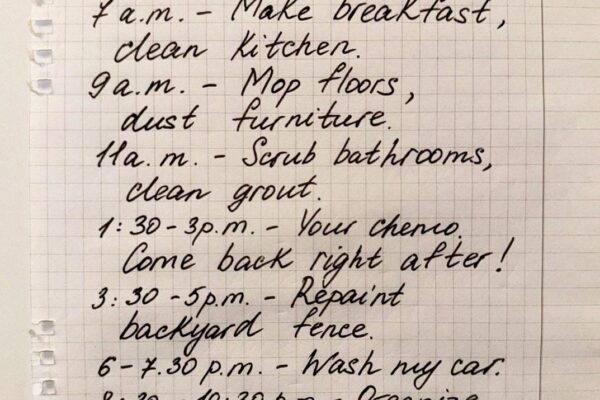 7 a.m. - Make breakfast,
clean kitchen.
9 a.m. - Mop floors,
dust furniture.
11 a.m. - Scrub bathrooms,
clean grout.
1:30 - 3 p.m. - Your chemo.
Come back right after!
3:30 - 5 p.m. - Repaint
backyard fence.
6 - 7.30 p.m. - Wash my car.
8:30 - 10:30 p.m. - Organize